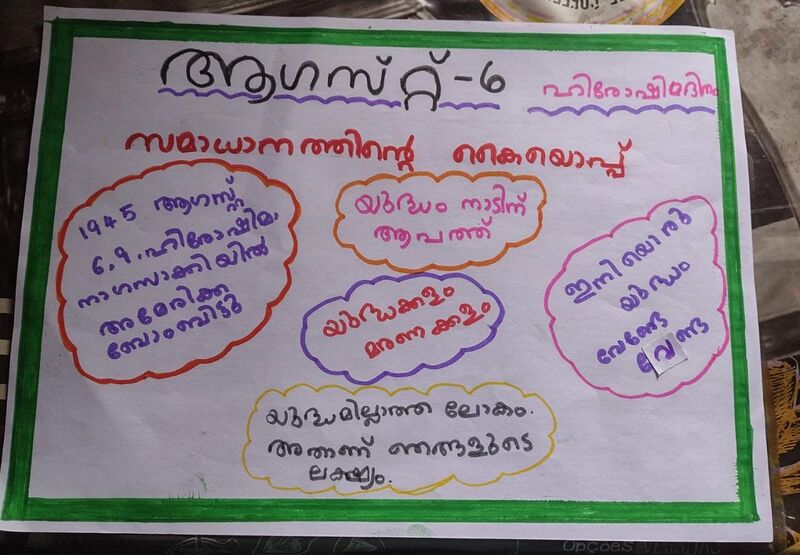 ആഗസ്റ്റ്-6
ഹിരോഷിമദിനം
സമാധാനത്തിന്റെ കൈയൊപ്പ്
1945 ആഗസ്റ്റ്
6,9,ഹിരോഷിമ
നാഗസാക്കിയിൽ
അമേരിക്ക
ബോംബിട്ടു
യുദ്ധം നാടിന്
ആപത്ത്
യുദ്ധക്കളം
മരണക്കളം
ഇനിയൊരു
യുദ്ധം
വേണ്ടേ
വേണ്ട
യുദ്ധമില്ലാത്ത ലോകം.
അതാണ് ഞങ്ങളുടെ
ലക്ഷ്യം.